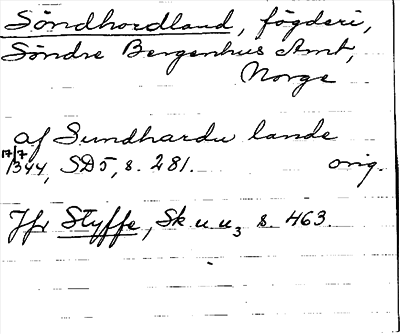 Söndhordland, fögderi,
Söndre Bergenhus Amt,
Norge
af Sundhardu lande
17/7 1344, SD5, s. 281. orig.
Jfr Styffe, Sk u u3 s. 463.